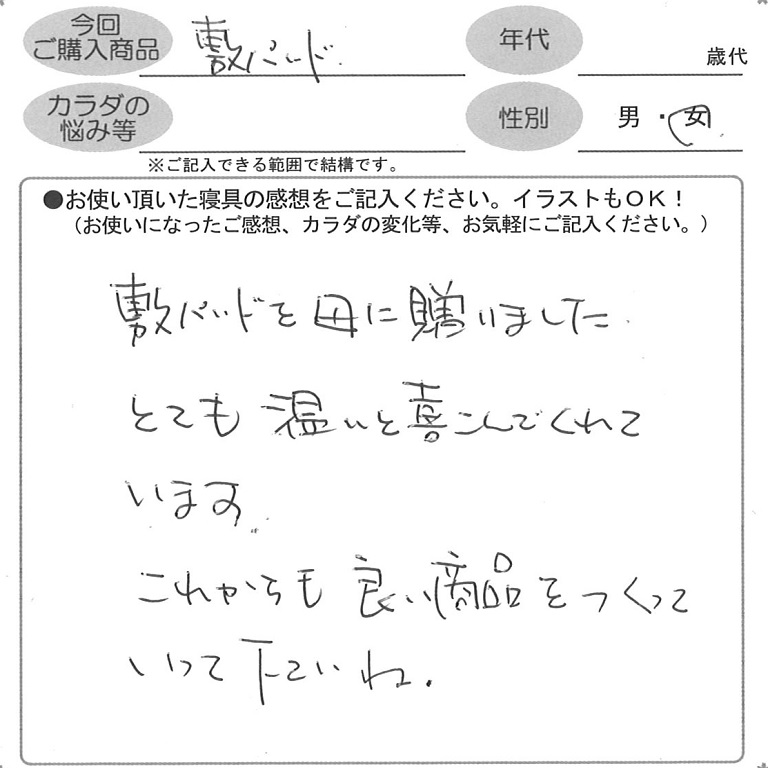 今回
ご購入商品
敷パッド
年代
歳代
カラダの
悩み等
性別
男・女
※ご記入できる範囲で結構です。
●お使い頂いた寝具の感想をご記入ください。イラストもOK！
（お使いになったご感想、カラダの変化等、お気軽にご記入ください。）
敷パッドを母に贈いました
とても温いと喜こんでくれて
います。
これからも良い商品をつくって
いって下さいね。